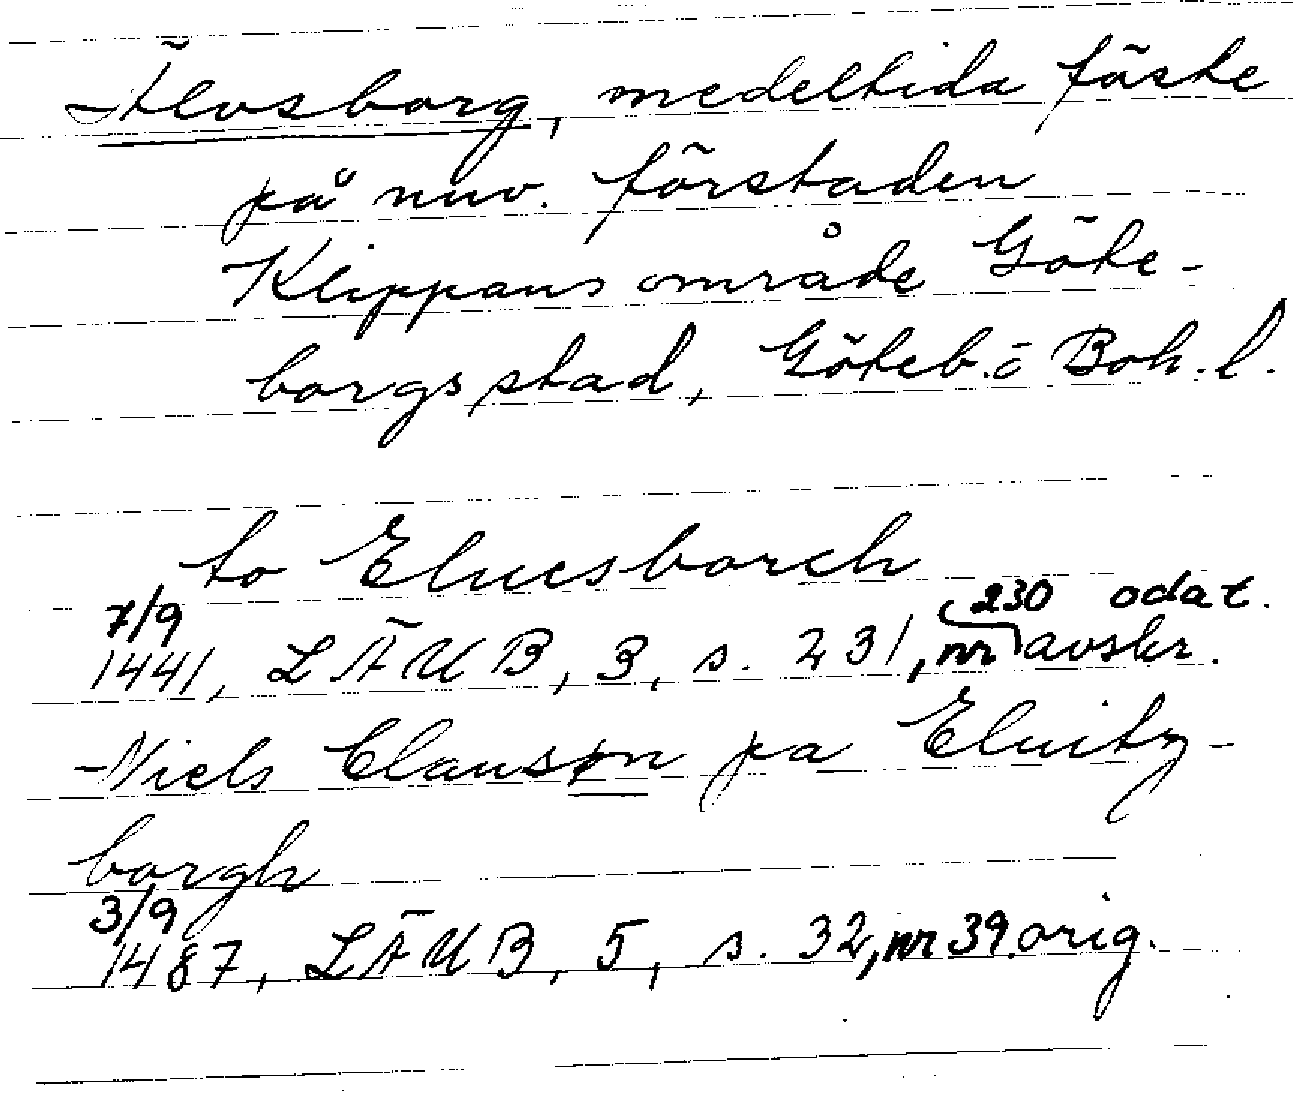 Älvsborg, medeltida fäste
på nuv. förstaden
Klippans område Göte-
borgs stad, Göteb. o Boh. l.
to Eluesborch
7/9 230 odat.
1441, LÄUB, 3, s. 231, nr avskr.
Niels Clausson pa Eluitz-
borgh
3/9
1487, LÄUB, 5, s. 32, nr 39. orig.